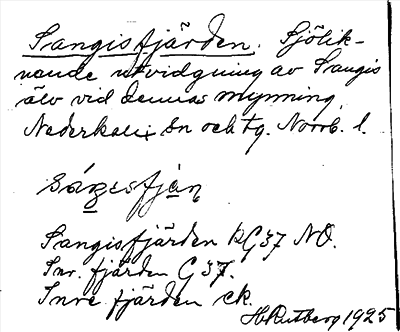 Sangisfjärden. Sjölik-
nande utvidgning av Sangis
älv vid dennas mynning,
Nederkalix sn och tg. Norrb. l.
Sangisfjärden kG37 NO.
Inr. fjärden G 37.
Inre fjärden ek.
HRutberg 1925